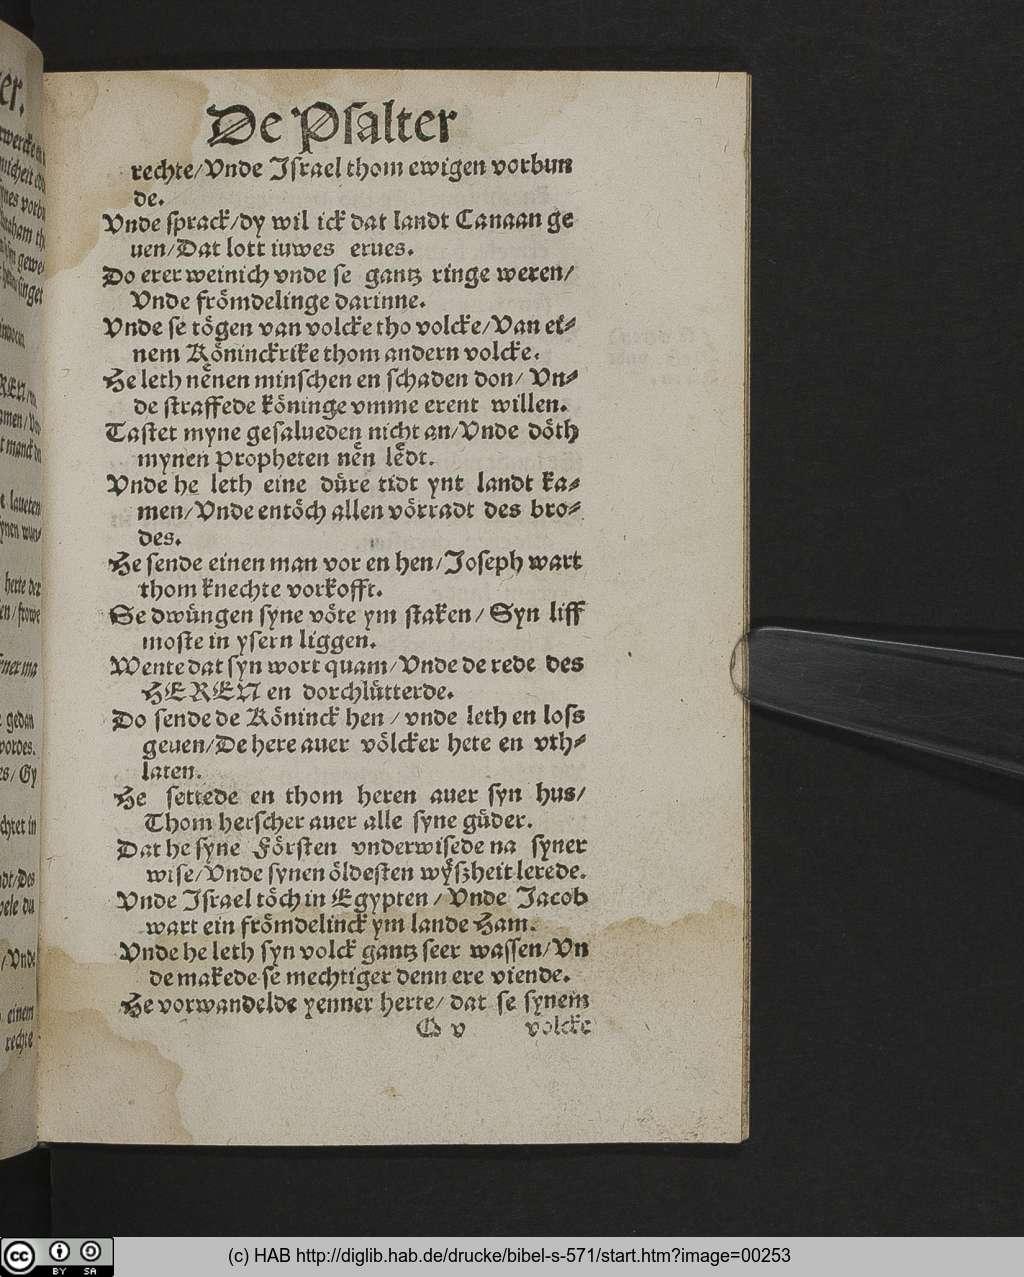 De Psalter
rechte/Vnde Jsrael thom ewigen vorbun
de.
Vnde sprack/dy wil ick dat landt Canaan ge
uen/Dat lott iuwes erues.
Do erer weinich vnde se gantz ringe weren/
Vnde froͤmdelinge darinne.
Vnde se toͤgen van volcke tho volcke/Van ei⸗
nem Koͤninckrike thom andern volcke.
He leth neͤnen minschen en schaden don/ Vn⸗
de straffede koͤninge vmme erent willen.
Tastet myne gesalueden nicht an/Vnde doͤth
mynen Propheten neͤn leͤdt.
Vnde he leth eine duͤre tidt ynt landt ka⸗
men/Vnde entoͤch allen voͤrradt des bro⸗
des.
He sende einen man vor en hen/Joseph wart
thom knechte vorkofft.
Se dwuͤngen syne voͤte ym staken/ Syn liff
moste in ysern liggen.
Wente dat syn wort quam/Vnde de rede des
HEREN en dorchluͤtterde.
Do sende de Koͤninck hen / vnde leth en loss
geuen/De here auer voͤlcker hete en vth⸗
laten.
He settede en thom heren auer syn hus/
Thom herscher auer alle syne guͤder.
Dat he syne Foͤrsten vnderwisede na syner
wise/Vnde synen oͤldesten wyͤßheit lerede.
Vnde Jsrael toͤch in Egypten / Vnde Jacob
wart ein froͤmdelinck ym lande Ham.
Vnde he leth syn volck gantz seer wassen/Vn
de makede se mechtiger denn ere viende.
He vorwandelde yenner herte/ dat se synem
G v volcke
er.
gedan
HEREN
laueten
herte der
/ frowe
/ Gy
/Des
/Vnde
einem
rechte
(c) HAB http://diglib.hab.de/drucke/bibel-s-571/start.htm?image=00253
cc BY SA